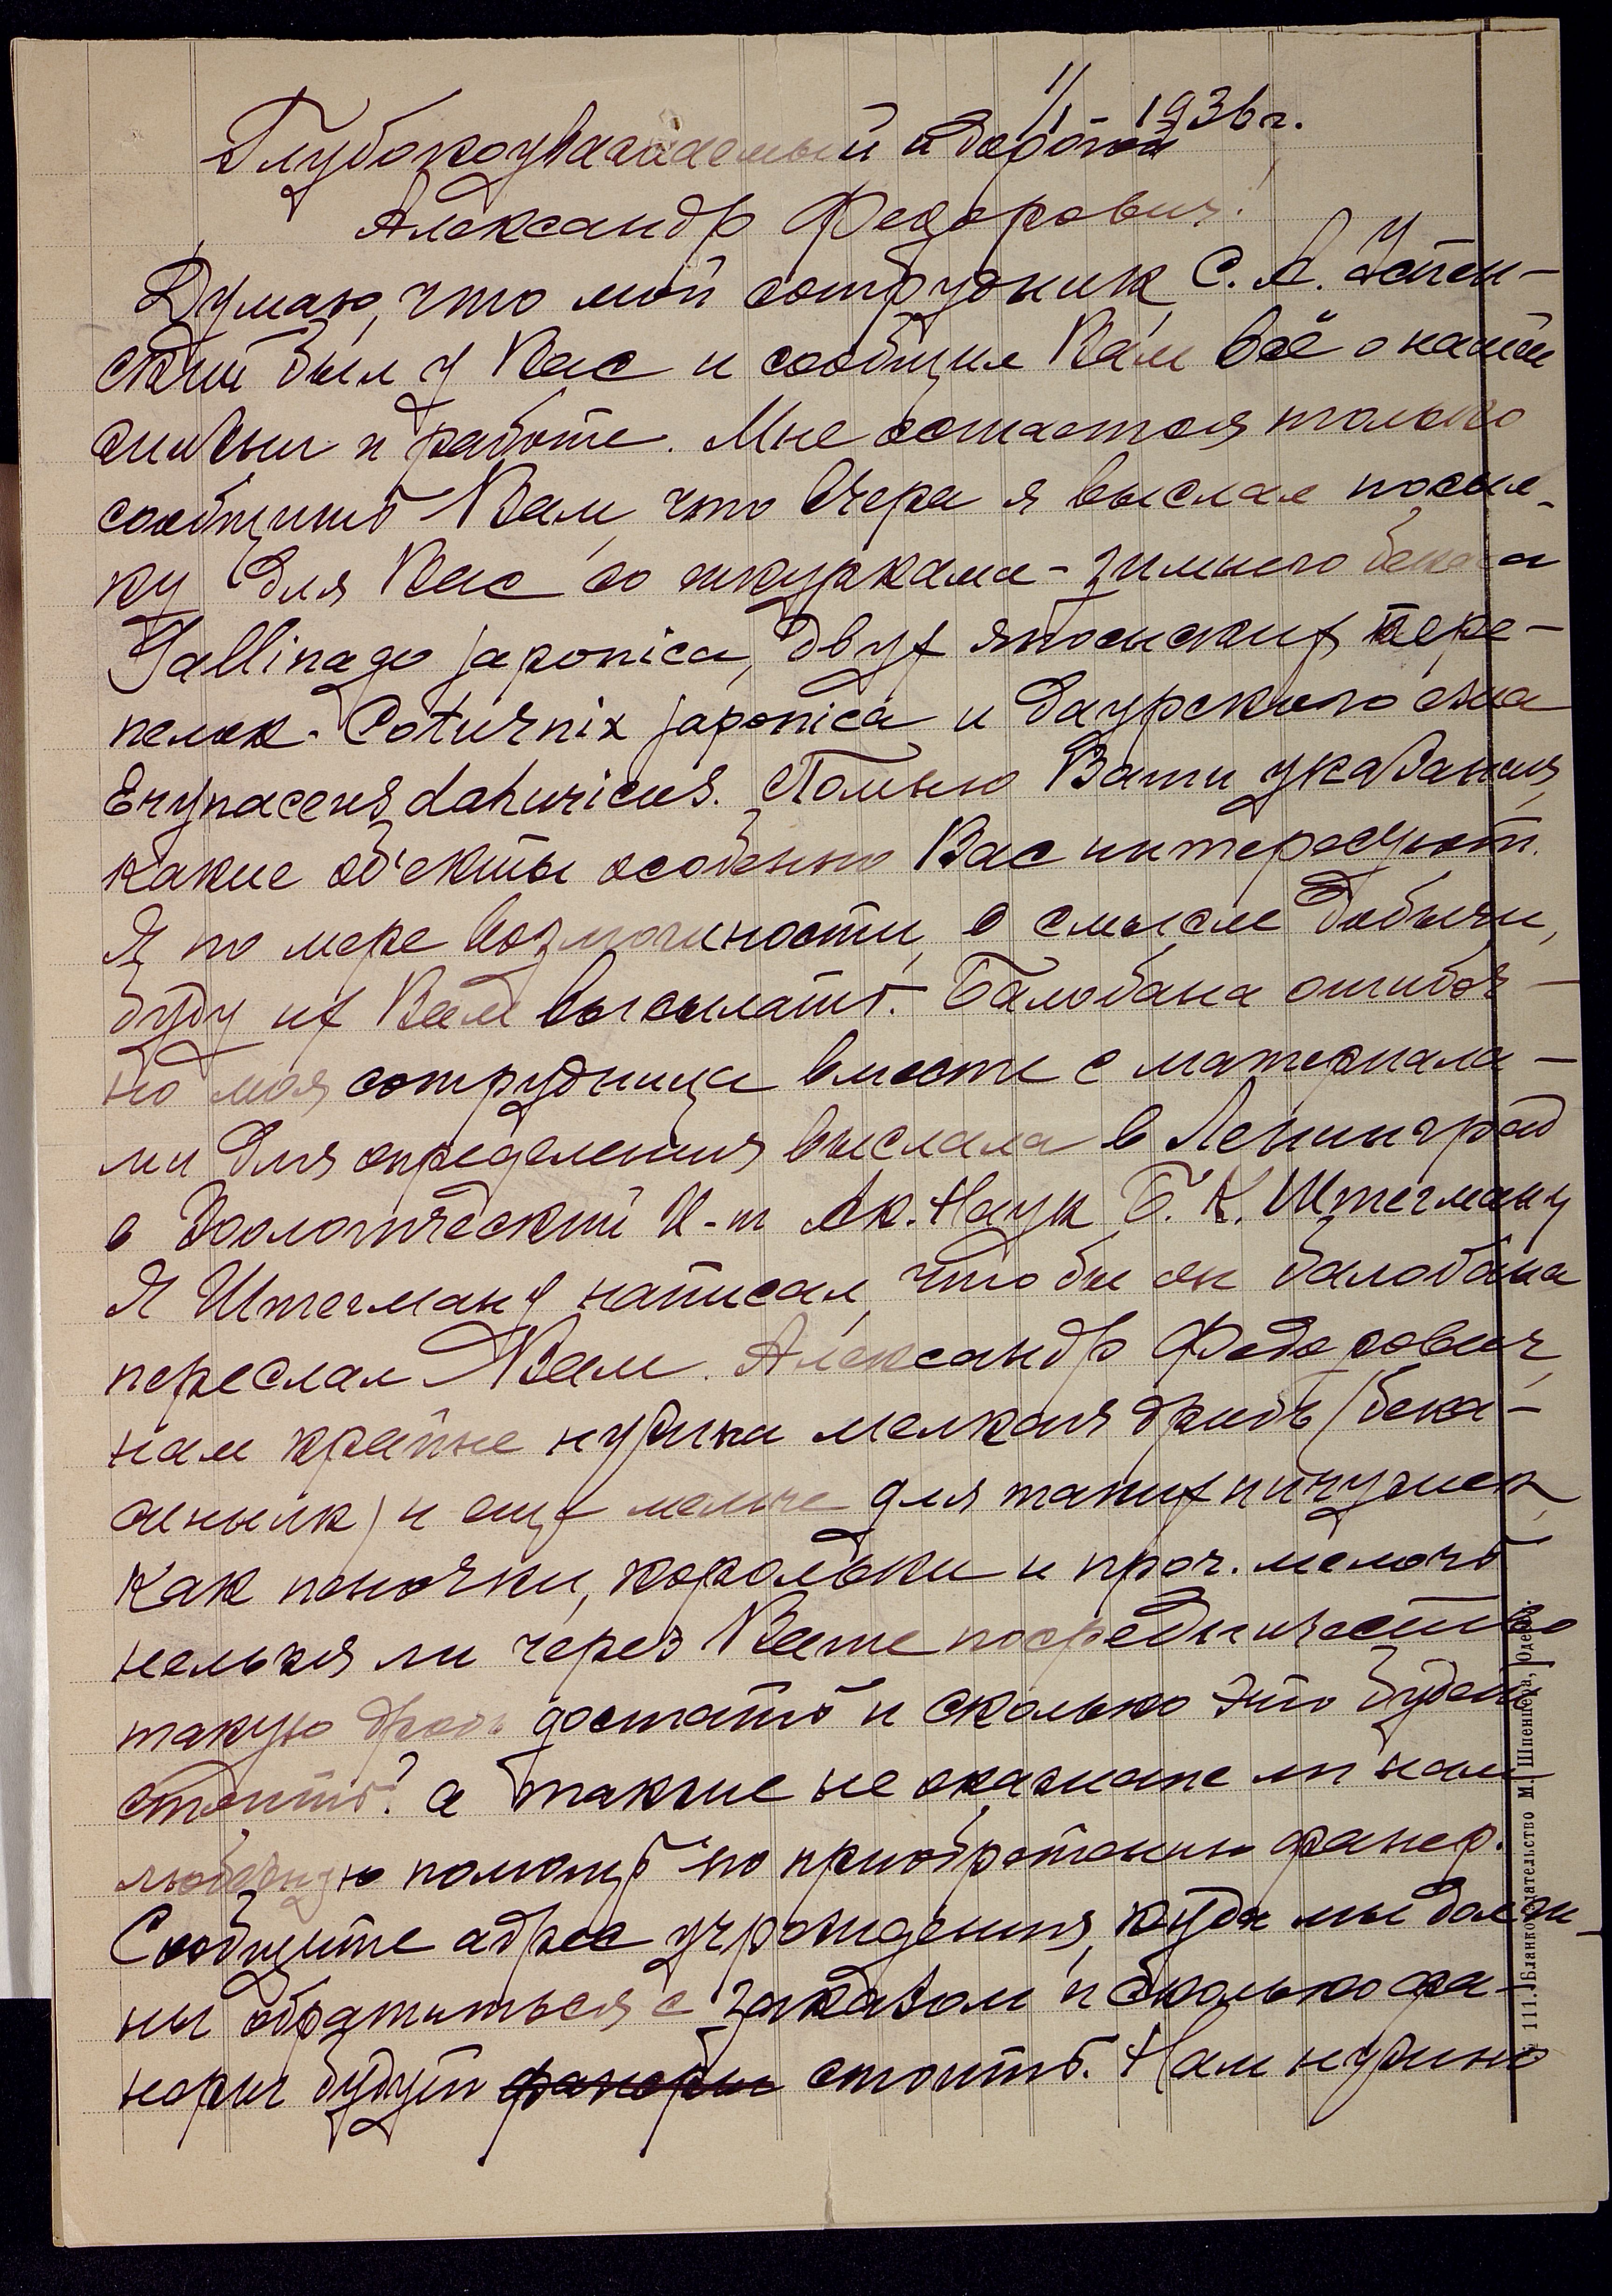 1/I 1936 г.
Глубокоуважаемый и дорогой
Александр Федорович!
Думаю, что мой сотрудник С. А. Успен-
ский был у Вас и сообщил Вам всё о нашей
жизни и работе. Мне остается только
сообщить Вам, что вчера я выслал посыл-
ку для Вас со шкурками - зимнего бекаса
Gallinago japonica, двух японских пере-
пелок - Coturnix japonica и даурского ежа
Erynaceus dahuricus. Помню Ваши указания,
какие об'екты особенно Вас интересуют.
Я по мере возможности, в смысле добычи,
буду их Вам высылать. Балобана ошибоч-
но моя сотрудница вместе с материала-
ми для определения выслала в Ленинград
в Зоологический И-т Ак. Наук Б. К. Штегману
Я Штегману написал, чтобы он балобана
переслал Вам. Александр Федорович,
нам крайне нужна мелкая дробь (бека-
синник) и еще мельче для таких пичужек,
как пеночки, корольки и проч. мелочь
нельзя ли через Ваше посредничество
такую дробь достать и сколько это будет
стоить? а также не окажете ли нам
любезную помощь по приобретению фанер.
Сообщите адрес учреждения, куда мы долж-
ны обратиться с заказом и сколько фа-
неры будут фанеры стоить. Нам нужно
111. Бланкоиздательство М. Шпенцера, Одесса.